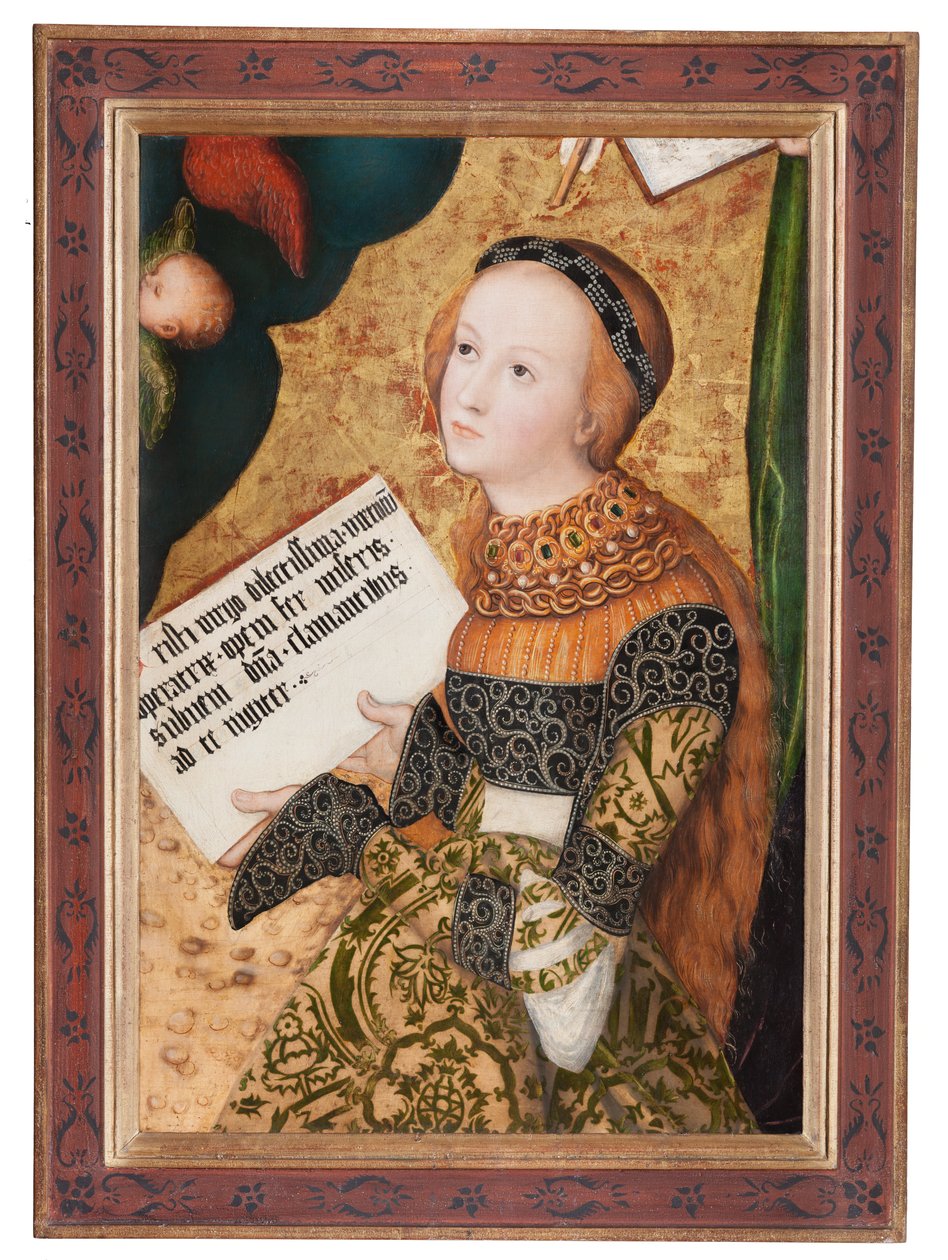 risti virgo dilectissima · virtutū
operatrix · opem fer miseris ·
subueni dn̄a · clamantibus ·
ad te iugiter ·